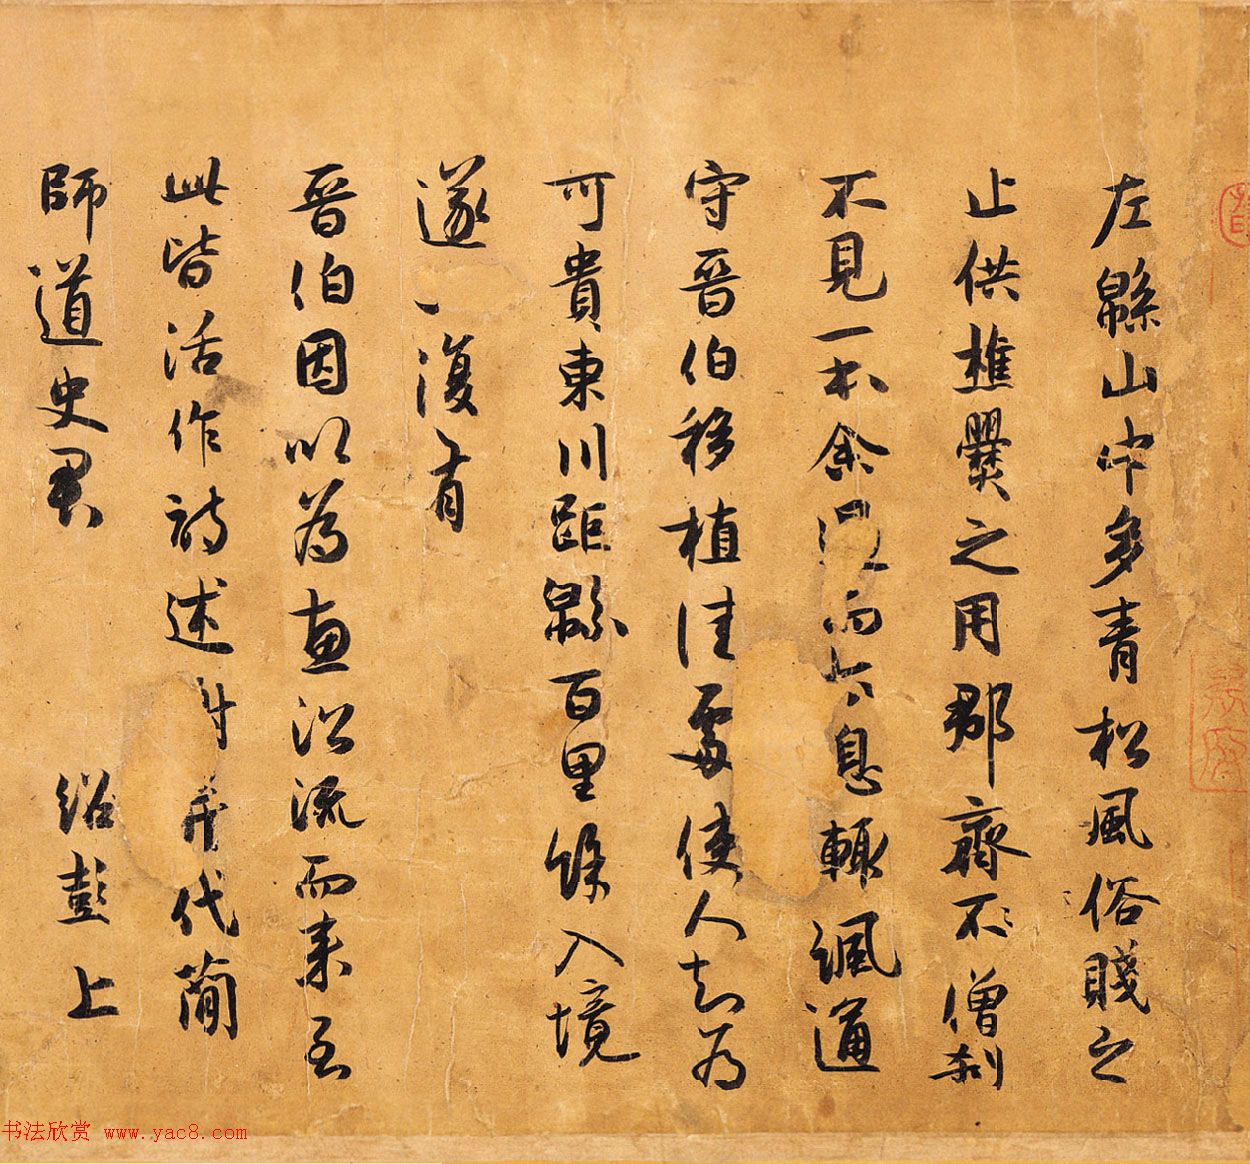 左緜山中多青松風俗賤之
止供樵爨之用郡齋不僧刹
不見一本余過而太息輒諷通
守晉伯移植佳處使人知為
可貴東川距緜百里餘入境
遂復有
晉伯因以為惠沿流而来至
此皆活作詩述并代簡
師道史君 紹彭上
书法欣赏 www.yac8.com